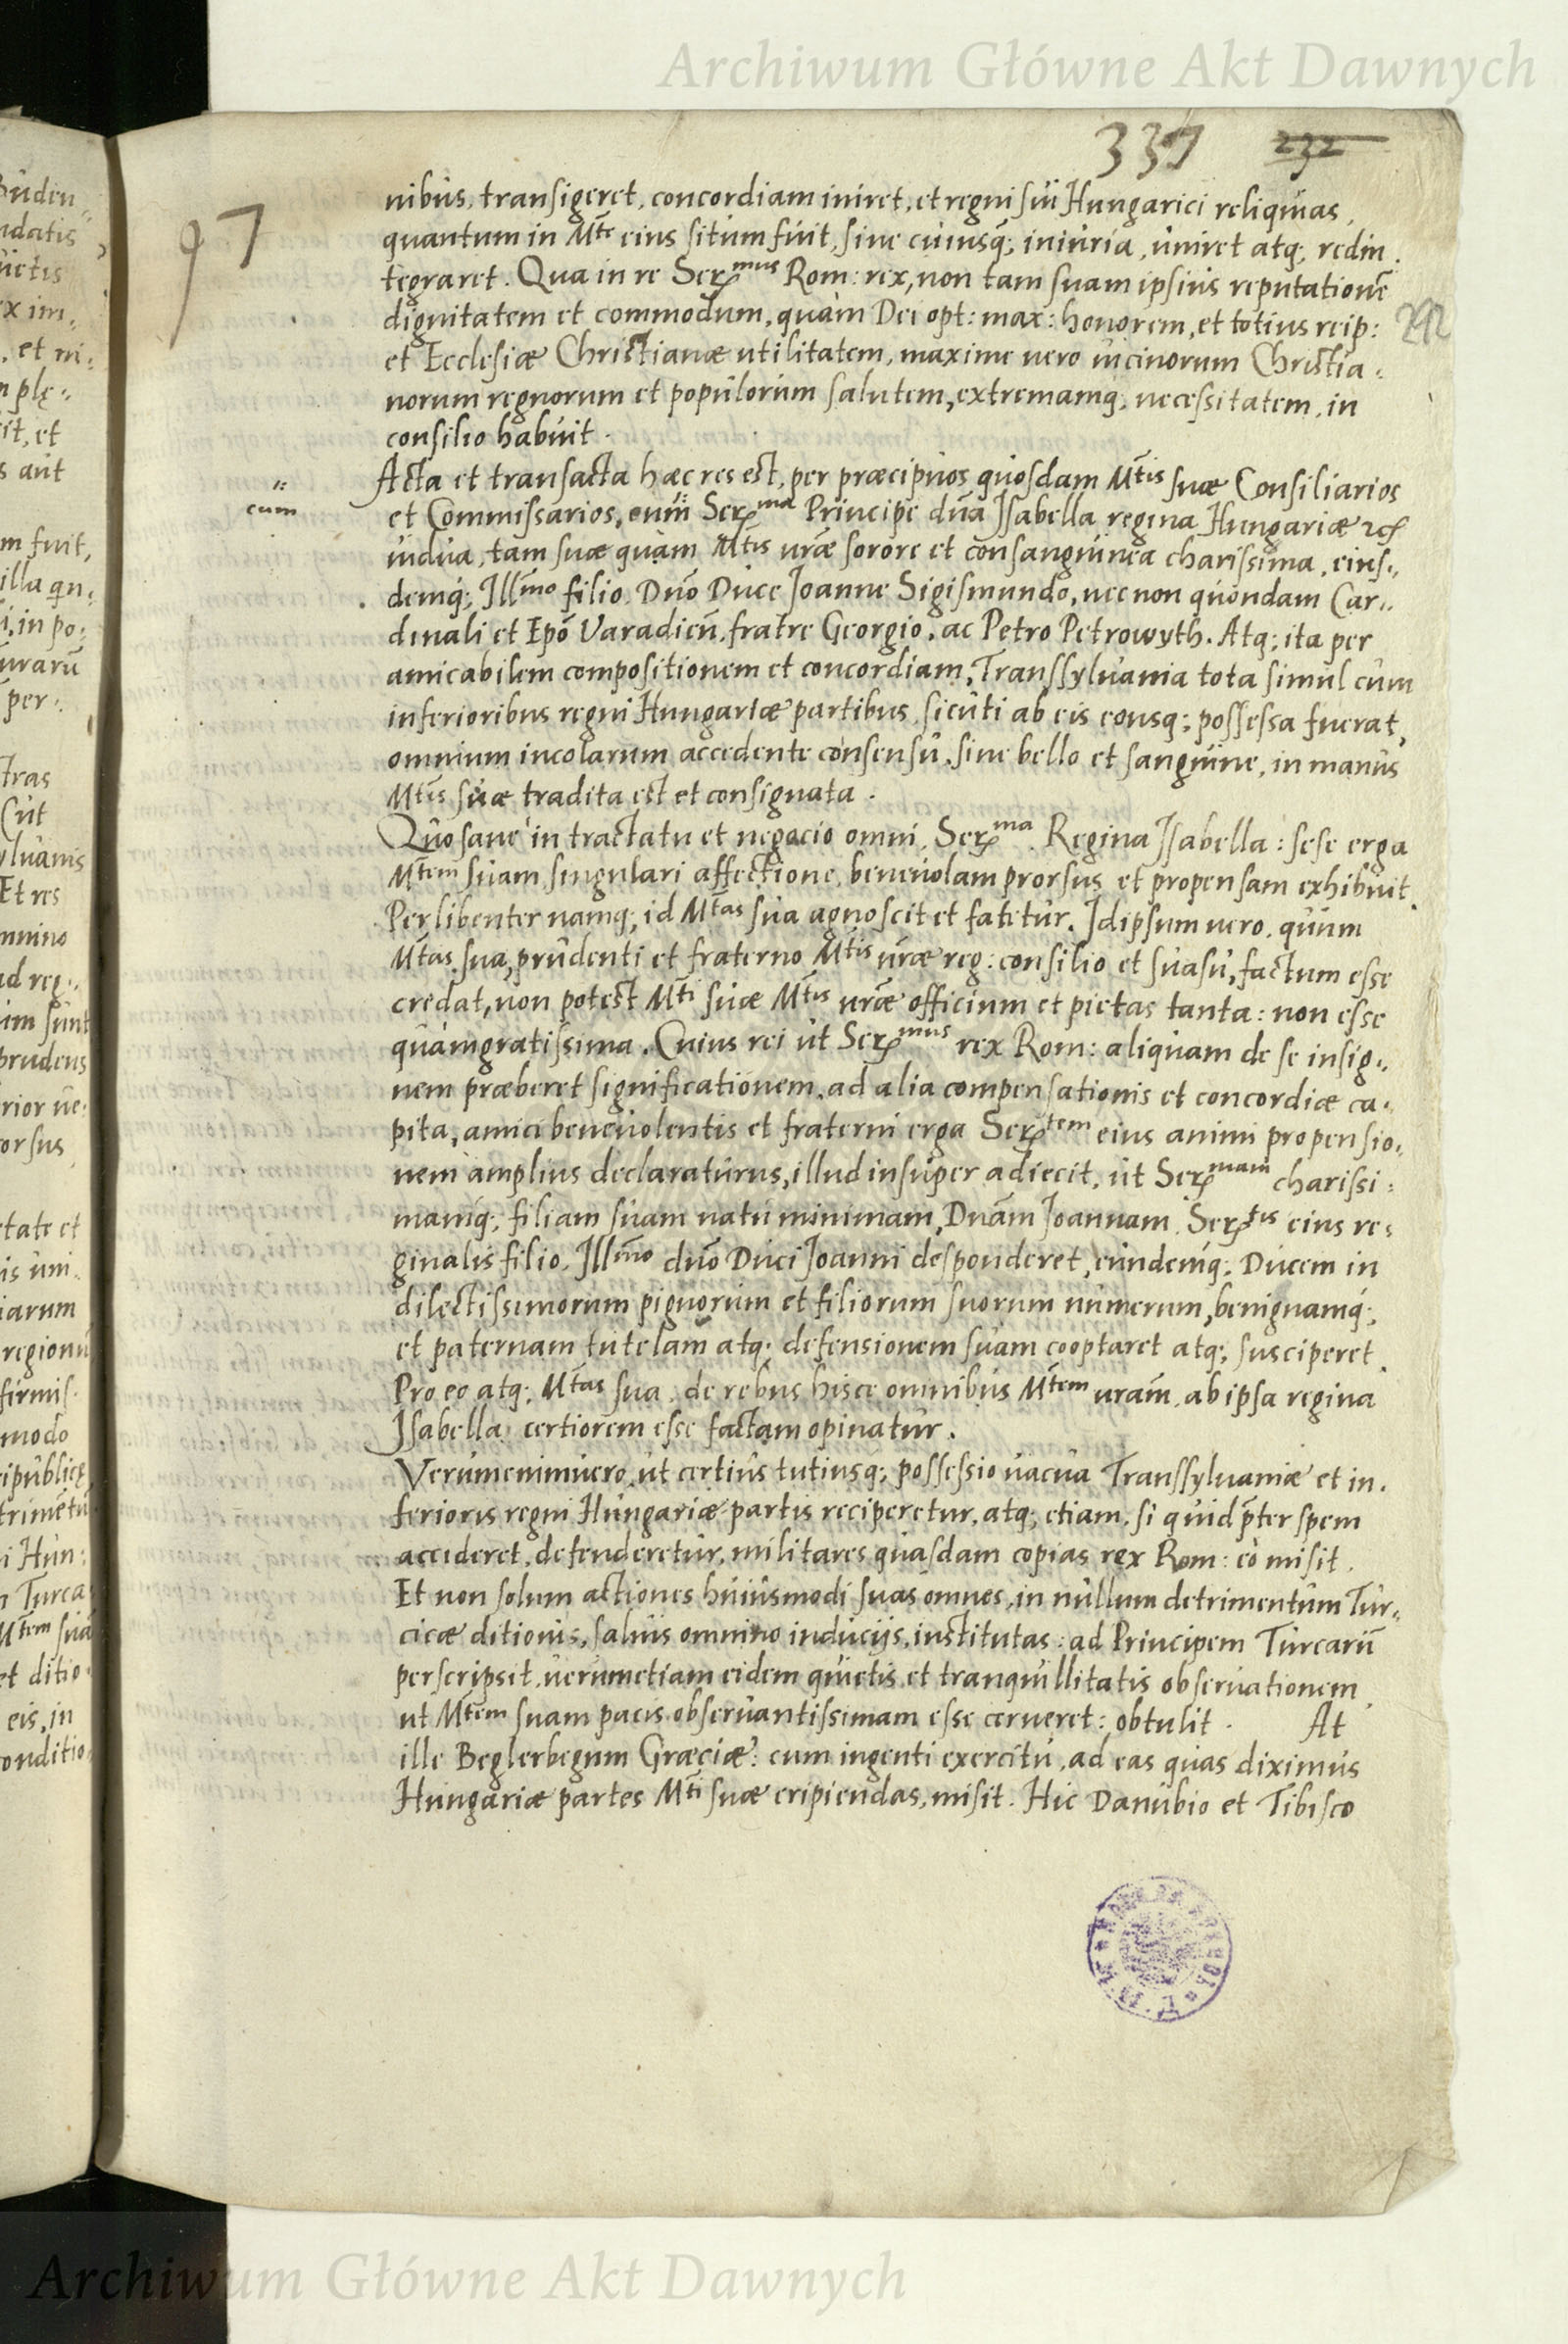 Archiwum Główne Akt Dawnych
337 232
97
nibus, transigeret, concordiam iniret, et regni sui Hungarici reliquias,
quantum in Mte eius situm fuit, sine cuiusq; iniuria, uniret atq; redin.
tegraret. Qua in re Sermus Rom: rex, non tam suam ipsius reputationē
dignitatem et commodum, quàm Dei opt: max: honorem, et totius reip:
292
et Ecclesiæ Christianæ utilitatem, maxime vero vicinorum Christia-
norum regnorum et populorum salutem, extremamq; necessitatem, in
consilio habuit.
Acta et transacta hæc res est, per præcipuos quosdam Mtis suæ Consiliarios
cum
et Commissarios, cum Serma Principe dña Isabella regina Hungariæ etc
vidua, tam suæ quàm Mtis vræ sorore et consanguinea charissima, eius-
demq; Illmo filio Dño Duce Joanne Sigismundo, nec non quondam Car-
dinali et Epō Varadieñ, fratre Georgio, ac Petro Petrowyth. Atq; ita per
amicabilem compositionem et concordiam, Transsylvania tota simul cum
inferioribus regni Hungariæ partibus, sicuti ab eis eousq; possessa fuerat,
omnium incolarum accedente consensu, sine bello et sanguine, in manus
Mtis suæ tradita est et consignata.
Quo sane in tractatu et negocio omni, Serma Regina Isabella: sese erga
Mtem suam, singulari affectione, benevolam prorsus et propensam exhibuit.
Perlibenter namq; id Mtas sua agnoscit et fatetur. Idipsum vero, quum
Mtas sua, prudenti et fraterno Mtis vræ reg: consilio et suasu, factum esse
credat, non potest Mti suæ Mtis vræ officium et pietas tanta: non esse
quàmgratissima. Cuius rei ut Sermus rex Rom: aliquam de se insig-
nem præberet significationem, ad alia compensationis et concordiæ ca-
pita, amici benevolentis et fraterni erga Sertem eius animi propensio-
nem amplius declaraturus, illud insuper adiecit, ut Sermam charissi-
mamq; filiam suam natu minimam, Dnam Joannam, Sertis eius re-
ginalis filio, Illmo dño Duci Joanni desponderet, eundemq; Ducem in
dilectissimorum pignorum et filiorum suorum numerum, benignamq;
et paternam tutelam atq; defensionem suam cooptaret atq; susciperet.
Pro eo atq; Mtas sua, de rebus hisce omnibus Mtem vram, ab ipsa regina
Isabella, certiorem esse factam opinatur.
Verumenimvero, ut certius tutiusq; possessio vacua Transsylvaniæ et in-
ferioris regni Hungariæ partis reciperetur, atq; etiam, si quid pter spem
accideret, defenderetur, militares quasdam copias rex Rom: eo misit.
Et non solum actiones huiusmodi suas omnes, in nullum detrimentum Tur-
cicæ ditionis, salvis omnino inducijs, institutas: ad Principem Turcarū
perscripsit, verumetiam eidem quietis et tranquillitatis observationem,
ut Mtem suam pacis observantissimam esse cerneret: obtulit. At
ille Beglerbegum Græciæ: cum ingenti exercitu, ad eas quas diximus
Hungariæ partes Mti suæ eripiendas, misit. Hic Danubio et Tibisco
Archiwum Główne Akt Dawnych